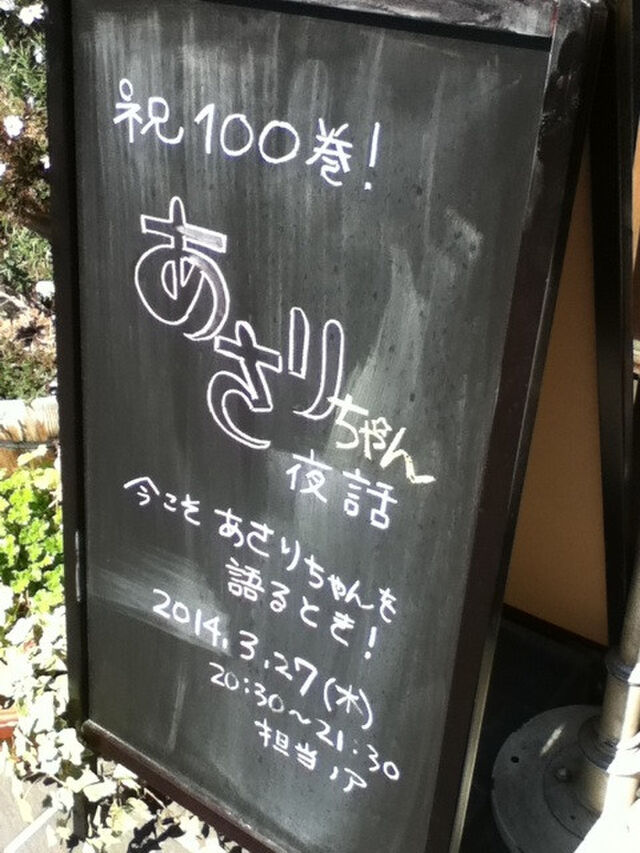 祝100巻!
あさりちゃん
夜話
今こそ あさりちゃんを
語るとき!
2014.3.27(木)
20:30~21:30
担当ノア